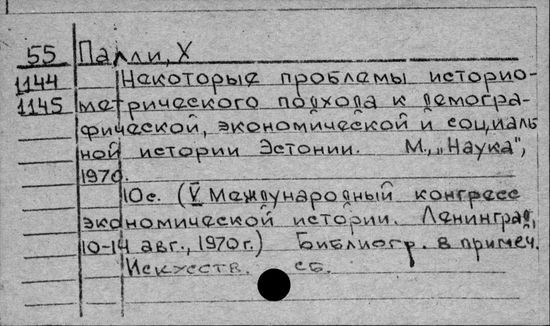 55 Палли, Х
1144 Некоторые проблемы историо-
1145 метрического подхода к демогра-
фической, экономической и социаль
ной истории Эстонии. М., „Наука",
1970.
10с. (V Международный конгресс
экономической истории. Ленинград,
10-14 авг., 1970г.) Библиогр. в примеч.
Искусств. сб.